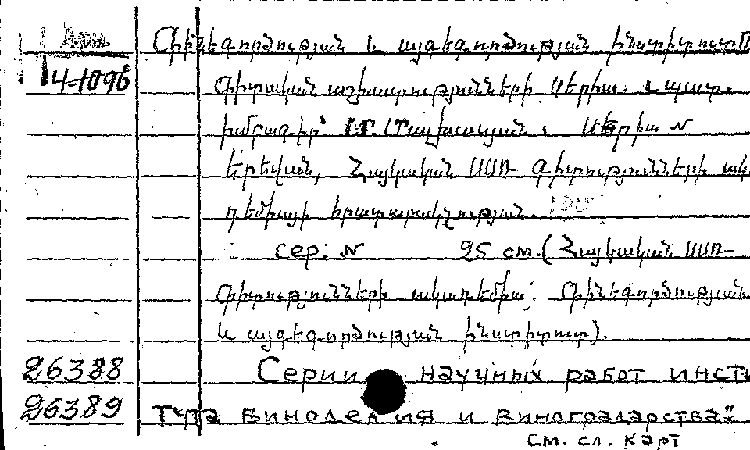 Գինեգործության և այգեգործության ինստիտուտ
4-1096 Գիտական աշխատությունների սերիա.
խմբագիր՝ սերիա №
Երևան, Հայկական ՍՍՌ գիտությունների ակ
դեմիայի հրատարակչության
сер. № 25 см. (Հայկական ՍՍՌ
Գիտությունների ակադեմիա: Գինեգործության
և այգեգործության ինստիտուտ).
26388 Серии научных работ инсти
26389 тута виноделия и виноградарства:
см. сл. карт